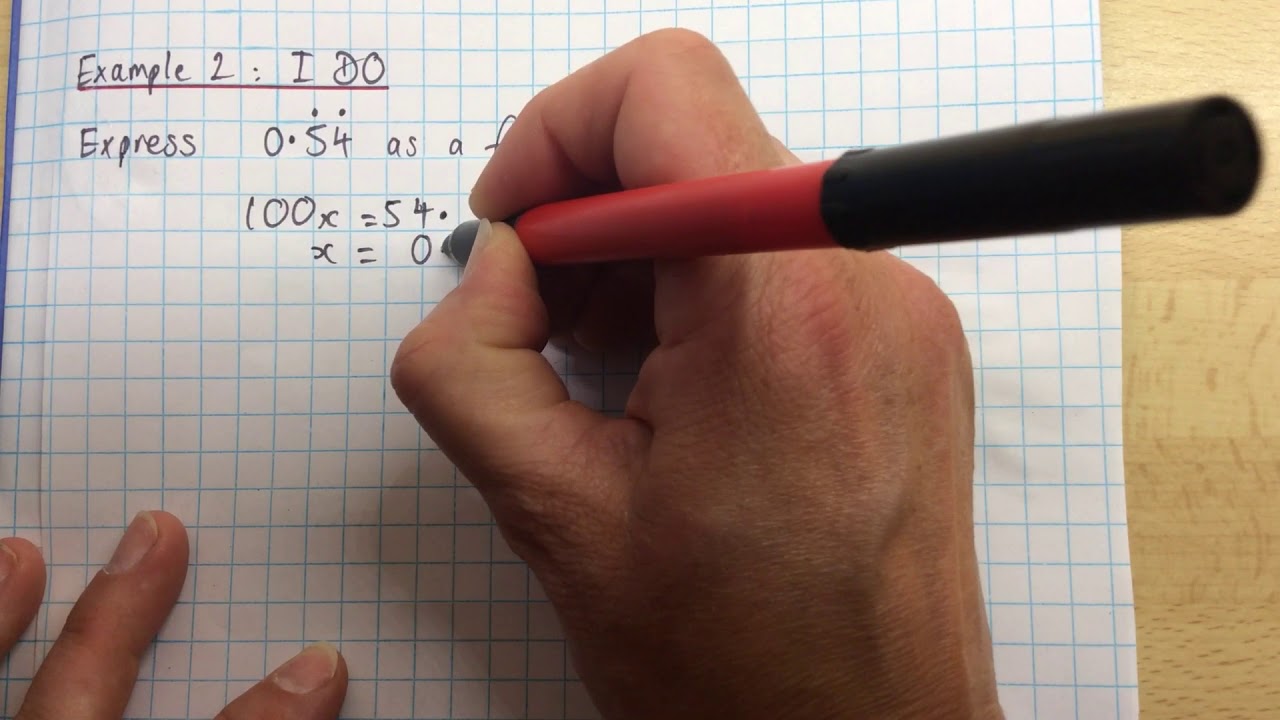 Example 2 : I DO
Express 0·5̇4̇ as a
100x = 54·
x = 0